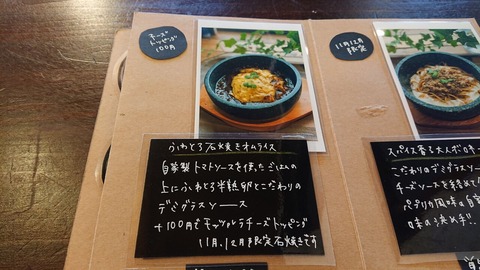 チーズ
トッピング
100円
11月12月
限定
ふわとろ石焼きオムライス
自家製トマトソースを使ったごはんの
上にふわとろ半熟卵とこだわりの
デミグラスソース
+100円でモッツァレラチーズトッピング
11月、12月限定石焼きです
スパイス香る
こだわりのデミグラスソー
チーズソースを
パプリカ風味の自
味の決め手!!